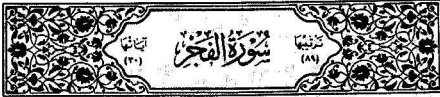 ترتيبها (٨٩) سُورَةُ الفَجْرِ آياتها (٣٠)